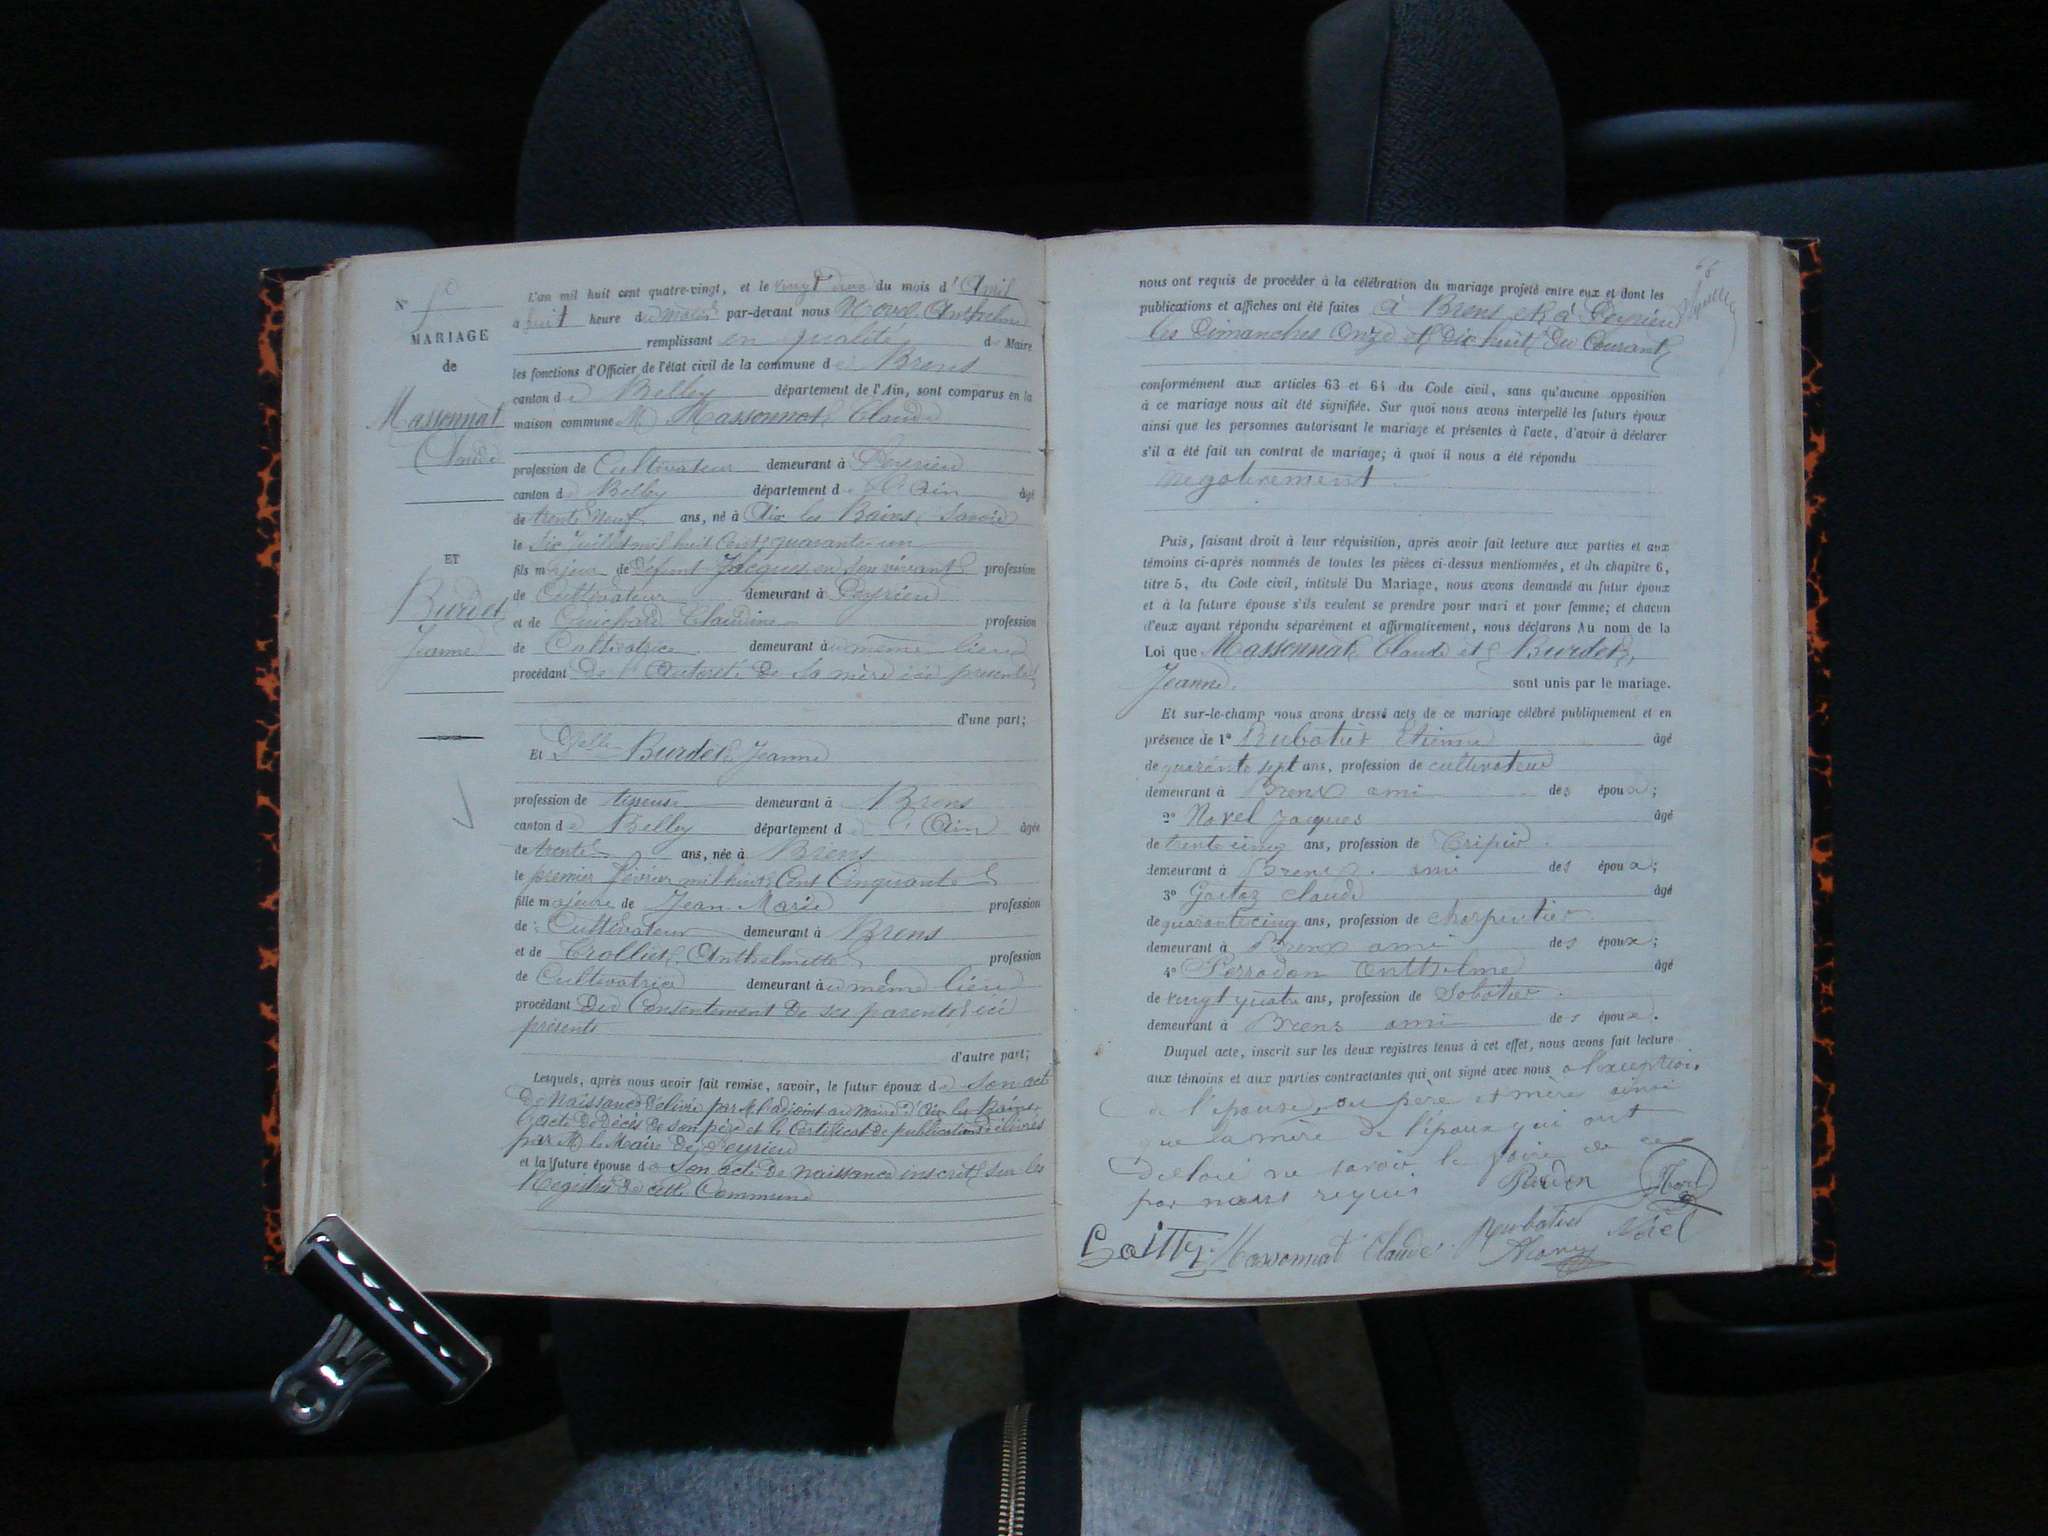 N°
MARIAGE
de
Massonnat
Claude
ET
Burdet
Jeanne
L'an mil huit cent quatre-vingt, et le vingt du mois d'Avril
à huit heure du matin par-devant nous Novel Anthelme
remplissant en qualité de Maire
les fonctions d'Officier de l'état civil de la commune de Brens
canton de Belley département de l'Ain, sont comparus en la
maison commune M Massonnat Claude
profession de Cultivateur demeurant à Peyrieu
canton de Belley département de l'Ain âgé
de trente neuf ans, né à Aix les Bains Savoie
le six juillet mil huit cent quarante un
fils majeur de défunt Jacques en son vivant profession
de Cultivateur demeurant à Peyrieu
et de Guichard Claudine profession
de Cultivatrice demeurant au même lieu
procédant De l'Autorité de sa mère ici présente
d'une part;
Et Delle Burdet Jeanne
profession de tisseuse demeurant à Brens
canton de Belley département de l'Ain âgée
de trente ans, née à Brens
le premier février mil huit Cent Cinquante
fille majeure de Jean Marie profession
de Cultivateur demeurant à Brens
et de Trolliet Anthelmette profession
de Cultivatrice demeurant au même lieu
procédant Du Consentement de ses parents ici
présents
d'autre part;
Lesquels, après nous avoir fait remise, savoir, le futur époux de Son acte
de Naissance délivré par M. l'adjoint au maire d'Aix les Bains
l'acte de décès de son père et le Certificat de publication délivrés
par M le Maire de Peyrieu
et la future épouse de Son acte de naissance inscrit sur les
Registres de cette Commune
nous ont requis de procéder à la célébration du mariage projeté entre eux et dont les
publications et affiches ont été faites à Brens et à Peyrieu
les Dimanches Onze et Dix huit Du Courant
conformément aux articles 63 et 64 du Code civil, sans qu'aucune opposition
à ce mariage nous ait été signifiée. Sur quoi nous avons interpellé les futurs époux
ainsi que les personnes autorisant le mariage et présentes à l'acte, d'avoir à déclarer
s'il a été fait un contrat de mariage; à quoi il nous a été répondu
négativement
Puis, faisant droit à leur réquisition, après avoir fait lecture aux parties et aux
témoins ci-après nommés de toutes les pièces ci-dessus mentionnées, et du chapitre 6,
titre 5, du Code civil, intitulé Du Mariage, nous avons demandé au futur époux
et à la future épouse s'ils veulent se prendre pour mari et pour femme; et chacun
d'eux ayant répondu séparément et affirmativement, nous déclarons Au nom de la
Loi que Massonnat Claude et Burdet
Jeanne sont unis par le mariage.
Et sur-le-champ nous avons dressé acte de ce mariage célébré publiquement et en
présence de 1° Rubatier Etienne âgé
de quarante sept ans, profession de cultivateur
demeurant à Brens ami des époux;
2° Novel Jacques âgé
de trente cinq ans, profession de
demeurant à Brens ami des époux;
3° Goitoz Claude âgé
de quarante cinq ans, profession de charpentier
demeurant à Brens ami des époux;
4° Perrodon Anthelme âgé
de vingt quatre ans, profession de Sabotier
demeurant à Brens ami des époux.
Duquel acte, inscrit sur les deux registres tenus à cet effet, nous avons fait lecture
aux témoins et aux parties contractantes qui ont signé avec nous à l'exception
de l'épouse, du père et mère ainsi
que la mère de l'époux qui ont
Déclaré ne savoir le faire de ce
par nous requis
Massonnat Claude Rubatier Novel